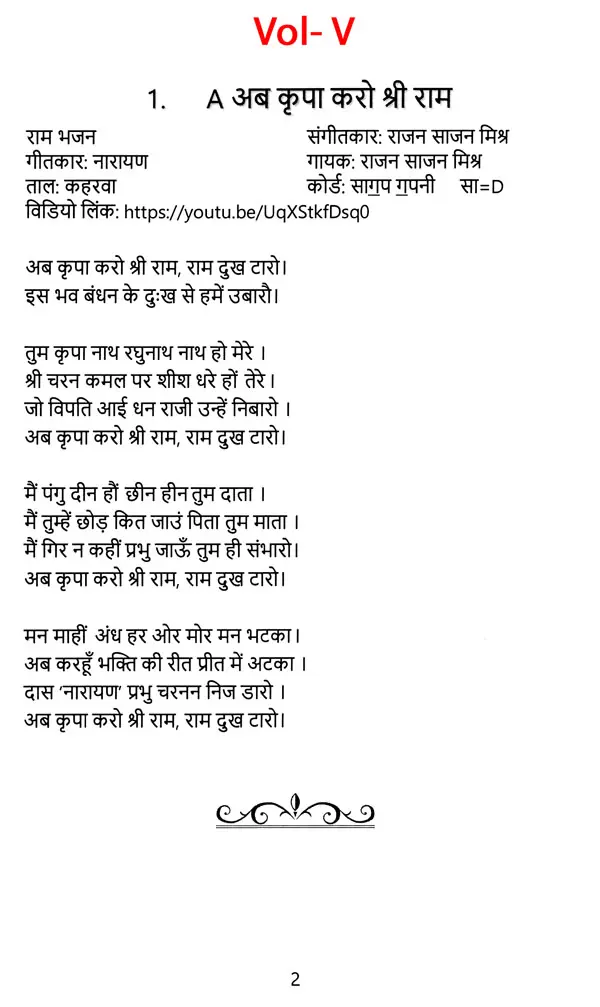 Vol- V
1. A अब कृपा करो श्री राम
राम भजन संगीतकार: राजन साजन मिश्र
गीतकार: नारायण गायक: राजन साजन मिश्र
ताल: कहरवा कोर्ड: साग॒प ग॒पनी सा=D
विडियो लिंक: https://youtu.be/UqXStkfDsq0
अब कृपा करो श्री राम, राम दुख टारो।
इस भव बंधन के दुःख से हमें उबारौ।
तुम कृपा नाथ रघुनाथ नाथ हो मेरे ।
श्री चरन कमल पर शीश धरे हों तेरे ।
जो विपति आई धन राजी उन्हें निबारो ।
अब कृपा करो श्री राम, राम दुख टारो।
मैं पंगु दीन हौं छीन हीन तुम दाता ।
मैं तुम्हें छोड़ कित जाउं पिता तुम माता ।
मैं गिर न कहीं प्रभु जाऊँ तुम ही संभारो।
अब कृपा करो श्री राम, राम दुख टारो।
मन माहीं अंध हर ओर मोर मन भटका।
अब करहूँ भक्ति की रीत प्रीत में अटका ।
दास ‘नारायण’ प्रभु चरनन निज डारो ।
अब कृपा करो श्री राम, राम दुख टारो।
2